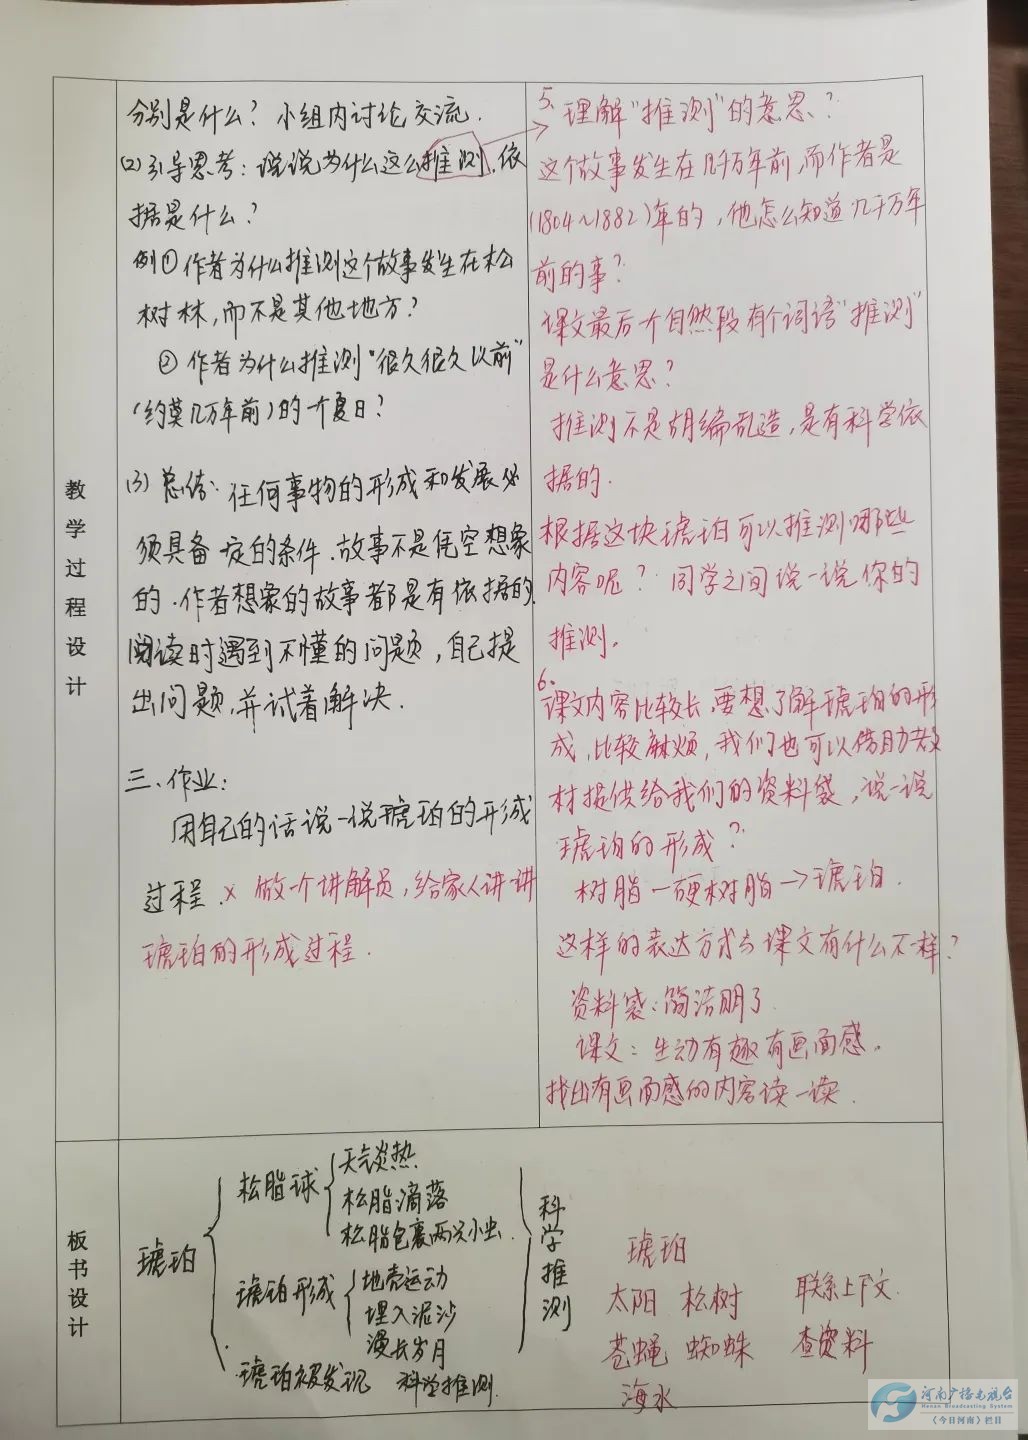 分别是什么？小组内讨论交流.
(2)引导思考：说说为什么这么推测.依
据是什么？
例①作者为什么推测这个故事发生在松
树林,而不是其他地方？
②作者为什么推测“很久很久以前”
(约莫几万年前)的一个夏日？
(3)总结.任何事物的形成和发展必
须具备一定的条件.故事不是凭空想象
的.作者想象的故事都是有依据的.
阅读时遇到不懂的问题,自己提
出问题,并试着解决.
三、作业：
用自己的话说一说琥珀的形成
过程.× 做一个讲解员,给家人讲讲
琥珀的形成过程.
教学过程设计
5.理解“推测”的意思？
这个故事发生在几千万年前,而作者是
(1804~1882)年的,他怎么知道几千万年
前的事？
课文最后一个自然段有个词语“推测”
是什么意思？
推测不是胡编乱造,是有科学依
据的.
根据这块琥珀可以推测哪些
内容呢？同学之间说一说你的
推测。
6.
课文内容比较长,要想了解琥珀的形
成,比较麻烦,我们也可以借助教
材提供给我们的资料袋,说一说
琥珀的形成？
树脂—硬树脂→琥珀.
这样的表达方式与课文有什么不一样？
资料袋：简洁明了.
课文：生动有趣有画面感。
找出有画面感的内容读一读.
板书设计
琥珀
松脂球
天气炎热
松脂滴落
松脂包裹两只小虫.
琥珀形成
地壳运动
埋入泥沙
漫长岁月
琥珀被发现 科学推测.
科学推测
琥珀
太阳 松树 联系上下文.
苍蝇 蜘蛛 查资料
海水
河南广播电视台
Henan Broadcasting System
《今日河南》栏目